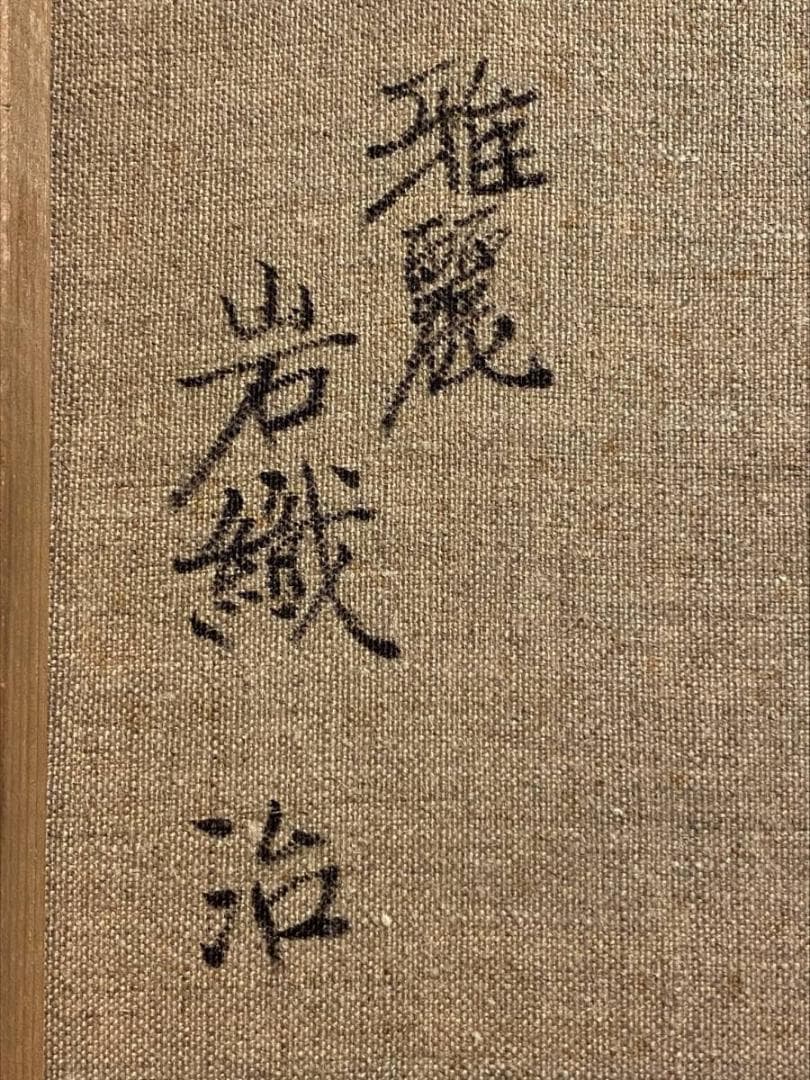 雅麗
岩織 治